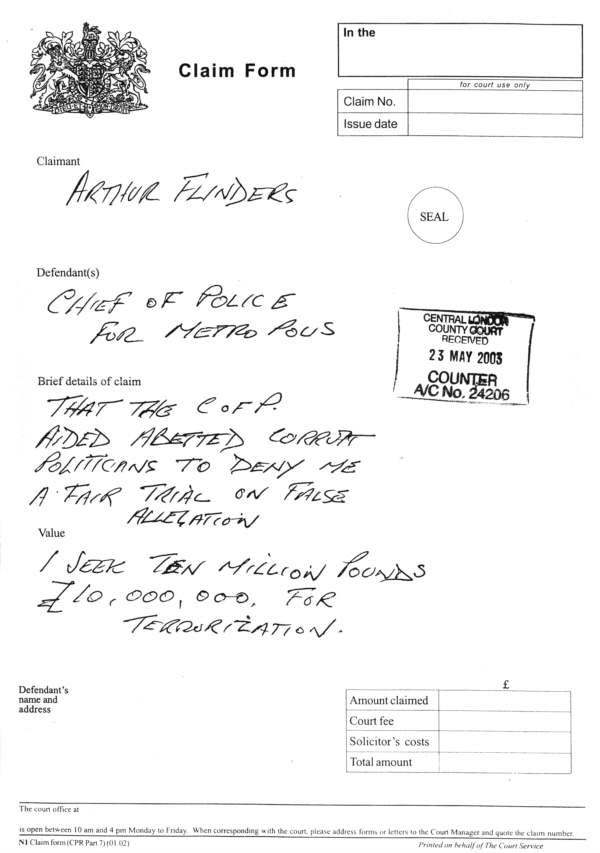 In the
Claim Form
for court use only
Claim No.
Issue date
Claimant
ARTHUR FLINDERS
SEAL
Defendant(s)
CHIEF OF POLICE
FOR METROPOLIS
CENTRAL LONDON
COUNTY COURT
RECEIVED
23 MAY 2003
COUNTER
A/C No. 24206
Brief details of claim
THAT THE C OF P.
AIDED ABETTED CORRUPT
POLITICANS TO DENY ME
A FAIR TRIAL ON FALSE
ALLEGATION
Value
I SEEK TEN MILLION POUNDS
£10,000,000, FOR
TERRORIZATION.
Defendant's
name and
address
£
Amount claimed
Court fee
Solicitor's costs
Total amount
The court office at
is open between 10 am and 4 pm Monday to Friday. When corresponding with the court, please address forms or letters to the Court Manager and quote the claim number.
N1 Claim form (CPR Part 7) (01.02)
Printed on behalf of The Court Service